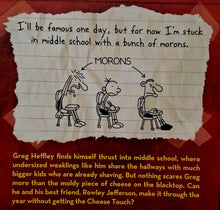 I'll be famous one day, but for now I'm stuck
in middle school with a bunch of morons.
MORONS
Greg Heffley finds himself thrust into middle school, where
undersized weaklings like him share the hallways with much
bigger kids who are already shaving. But nothing scares Greg
more than the moldy piece of cheese on the blacktop. Can
he and his best friend, Rowley Jefferson, make it through the
year without getting the Cheese Touch?